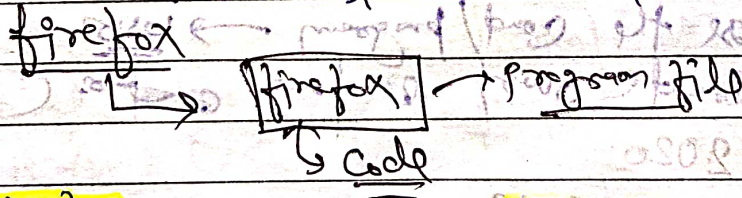 firefox
firefox → program file
code